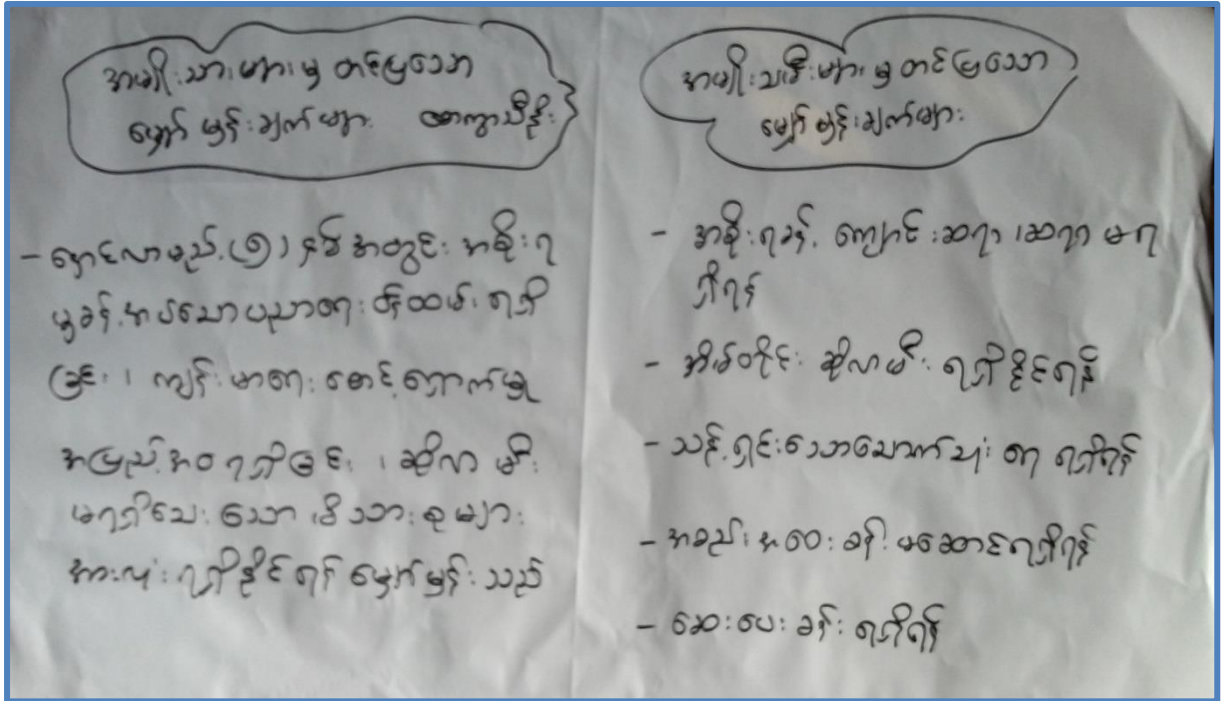 အမျိုးသားများမှ တင်ပြသော
မျှော်မှန်းချက်များ
- နှောင်လာမည့် (၅) နှစ်အတွင်း အစိုးရ
မှခန့်အပ်သောပညာရေးဝန်ထမ်း ရရှိ
ခြင်း၊ ကျန်းမာရေး စောင့်ရှောက်မှု
အပြည့်အဝ ရရှိခြင်း ၊ ဆိုလာ မီး
မရရှိသေး သော မိသားစု များ
အားလုံး ရရှိနိုင်ရန် မျှော်မှန်းသည်
အမျိုးသမီးများ မှ တင်ပြသော
မျှော်မှန်းချက်များ
- အစိုးရခန့် ကျောင်းဆရာ ၊ဆရာမ ရ
ရှိရန်
- အိမ်တိုင်း ဆိုလာမီး ရရှိနိုင်ရန်
- သန့်ရှင်းသောသောက်သုံးရေ ရရှိရန်
- အစည်းအဝေးခန်းမဆောင်ရရှိရန်
- ဆေးပေးခန်းရရှိရန်